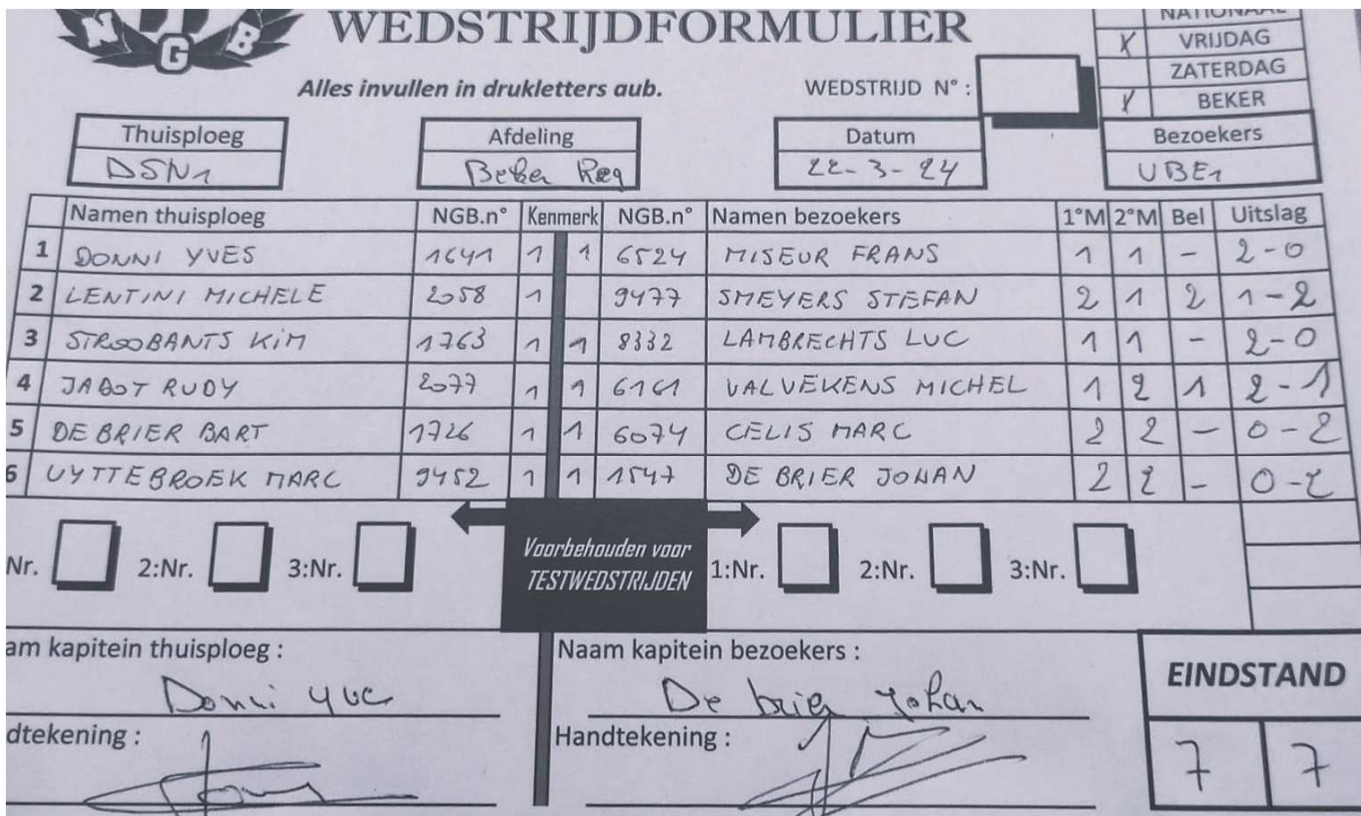 WEDSTRIJDFORMULIER
NATIONAAL
X VRIJDAG
ZATERDAG
X BEKER
N G B
Alles invullen in drukletters aub.
WEDSTRIJD N° :
Thuisploeg Afdeling Datum Bezoekers
DSN1 Beker Reg 22-3-24 UBE1
Namen thuisploeg NGB.n° Kenmerk NGB.n° Namen bezoekers 1°M 2°M Bel Uitslag
1 DONNI YVES 1641 1 1 6524 MISEUR FRANS 1 1 - 2-0
2 LENTINI MICHELE 2058 1 9477 SMEYERS STEFAN 2 1 2 1-2
3 STROOBANTS KIM 1763 1 1 8332 LAMBRECHTS LUC 1 1 - 2-0
4 JABOT RUDY 2077 1 1 6161 VALVEKENS MICHEL 1 2 1 2-1
5 DE BRIER BART 1726 1 1 6074 CELIS MARC 2 2 - 0-2
6 UYTTEBROEK MARC 9452 1 1 1547 DE BRIER JOHAN 2 2 - 0-2
Nr. 2:Nr. 3:Nr. Voorbehouden voor TESTWEDSTRIJDEN 1:Nr. 2:Nr. 3:Nr.
am kapitein thuisploeg : Naam kapitein bezoekers : EINDSTAND
Donni Yve De brier Johan
dtekening : Handtekening : 7 7